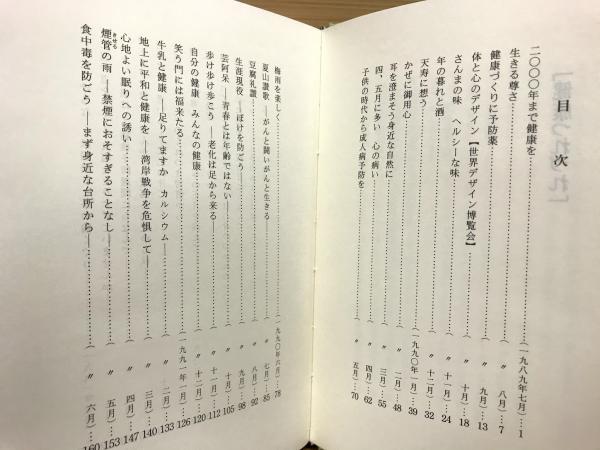 目次
二〇〇〇年まで健康を……(一九八九年七月)…1
生きる尊さ……(〃 八月)…7
健康づくりに予防薬……(〃 九月)…13
体と心のデザイン【世界デザイン博覧会】……(〃 十月)…18
さんまの味 ヘルシーな味……(〃 十一月)…24
年の暮れと酒……(〃 十二月)…32
天寿に想う……(一九九〇年一月)…39
かぜに御用心……(〃 二月)…48
耳を澄まそう身近な自然に……(〃 三月)…55
四、五月に多い 心の病い……(〃 四月)…62
子供の時代から成人病予防を……(〃 五月)…70
梅雨を楽しく……(一九九〇年六月)…78
夏山讃歌――がんと闘いがんと生きる――……(〃 七月)…85
豆腐礼讃……(〃 八月)…92
生涯現役――ぼけを防ごう……(〃 九月)…98
芸阿呆――青春とは年齢ではない――……(〃 十月)…105
歩け歩け歩こう――老化は足から来る――……(〃 十一月)…112
自分の健康 みんなの健康……(〃 十二月)…120
笑う門には福来たる……(一九九一年一月)…126
牛乳と健康――足りてますか カルシウム――……(〃 二月)…133
地上に平和と健康を――湾岸戦争を危惧して――……(〃 三月)…140
心地よい眠りへの誘い……(〃 四月)…147
煙管の雨――禁煙におそすぎることなし――……(〃 五月)…153
きせる
食中毒を防ごう――まず身近な台所から――……(〃 六月)…160